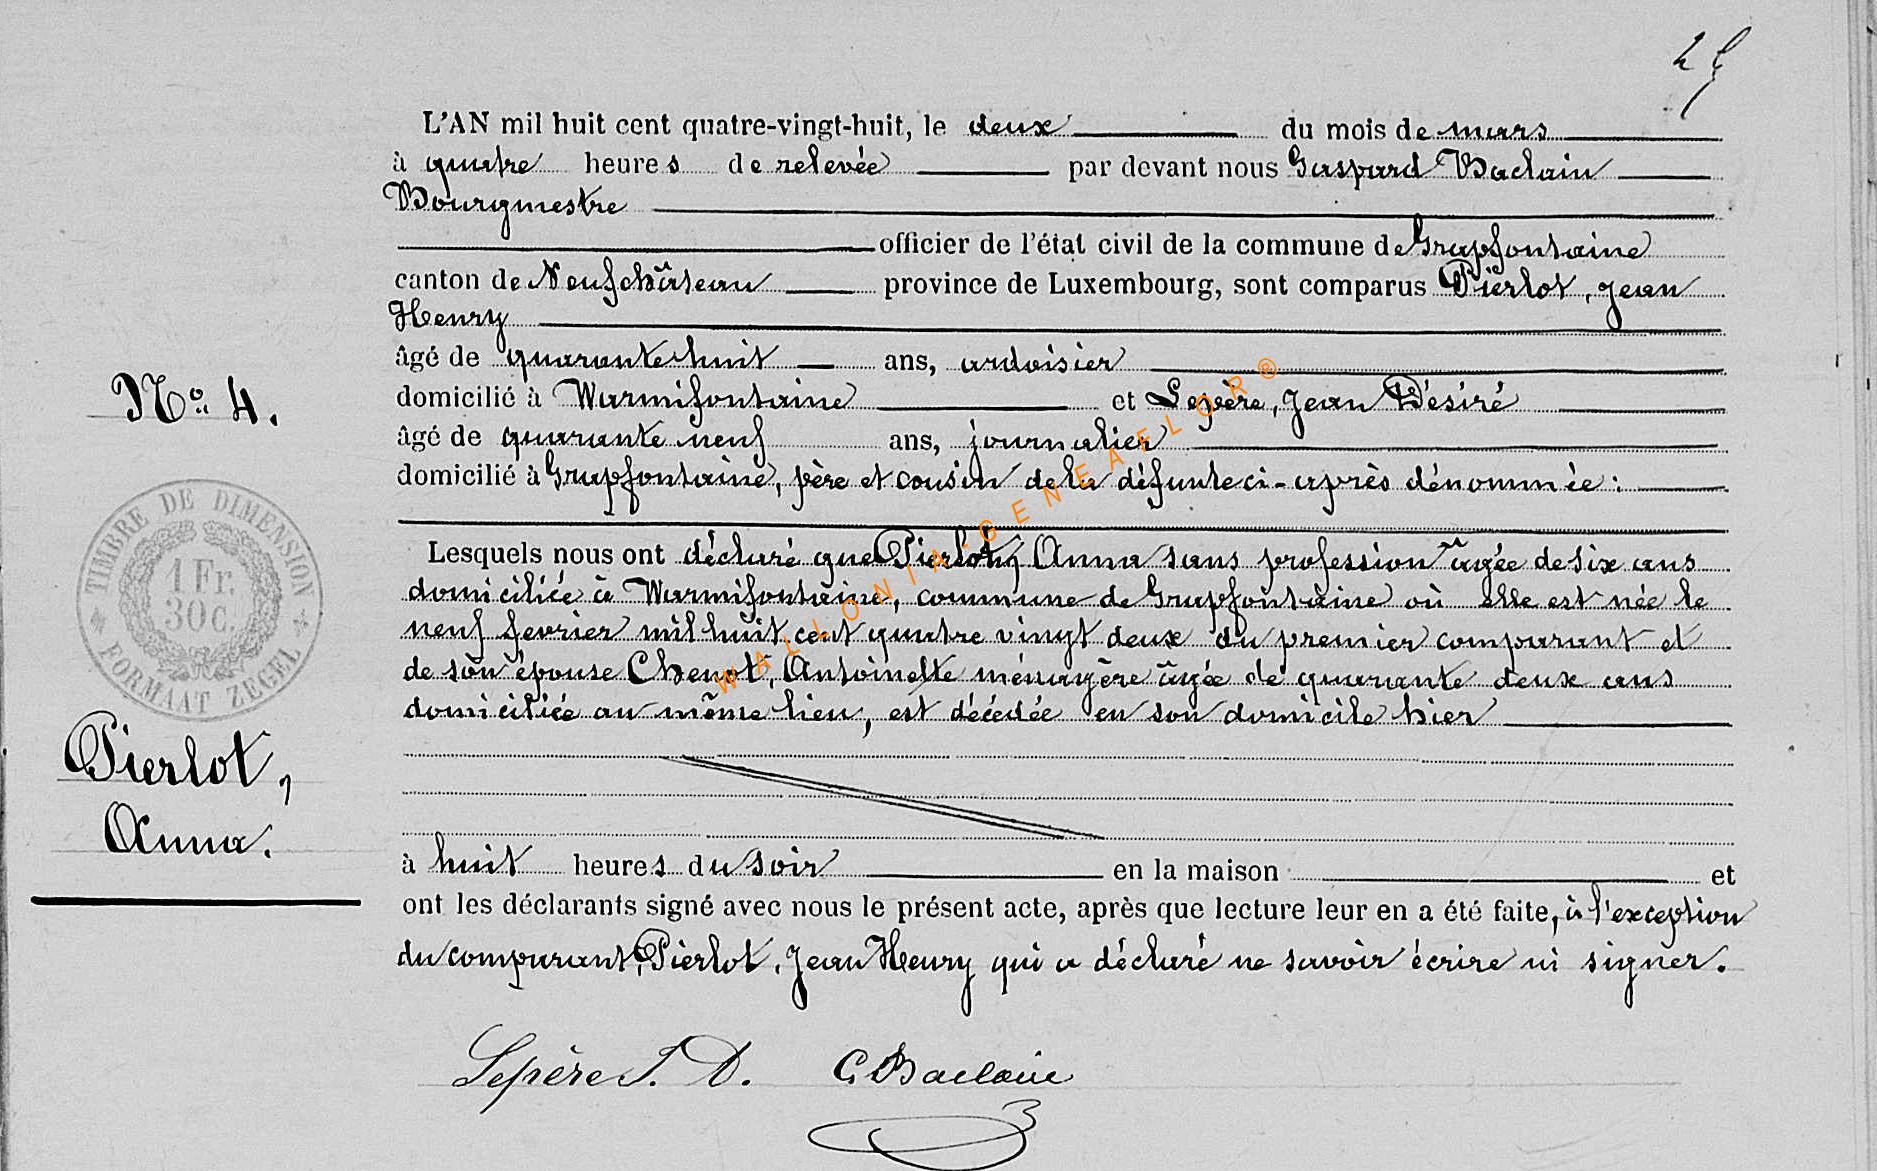 L'AN mil huit cent quatre-vingt-huit, le deux du mois de mars
à quatre heures de relevée par devant nous Gaspard Baclain
Bourgmestre
officier de l'état civil de la commune de Grapfontaine
canton de Neufchâteau province de Luxembourg, sont comparus Pierlot, Jean
Henry
âgé de quarante huit ans, ardoisier
domicilié à Warmifontaine et Lepère, Jean Désiré
âgé de quarante neuf ans, journalier
domicilié à Grapfontaine, père et cousin de la défunte ci-après dénommée :
Lesquels nous ont déclaré que Pierlot, Anna sans profession âgée de six ans
domiciliée à Warmifontaine, commune de Grapfontaine où elle est née le
neuf fevrier mil huit cent quatre vingt deux du premier comparant et
de son épouse Chenot, Antoinette ménagère âgée de quarante deux ans
domiciliée au même lieu, est décédée en son domicile hier
à huit heures du soir en la maison et
ont les déclarants signé avec nous le présent acte, après que lecture leur en a été faite, à l'exception
du comparant Pierlot, Jean Henry qui a déclaré ne savoir écrire ni signer.
Lepère J. D. G Baclain
No. 4.
TIMBRE DE DIMENSION
1 Fr.
30 C.
FORMAAT ZEGEL
Pierlot,
Anna.
WALLONIA-GENEAFLOR®